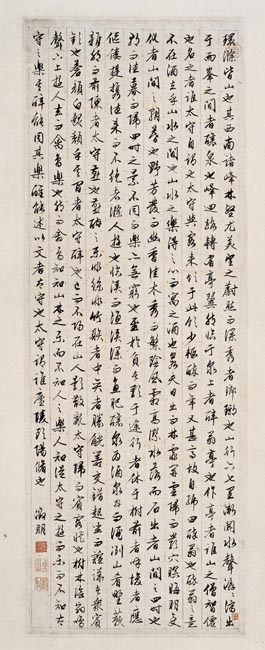 環滁皆山也其西南諸峰林壑尤美望之蔚然而深秀者瑯琊也山行六七里漸聞水聲潺潺瀉出
于兩峯之間者釀泉也峰回路轉有亭翼然臨于泉上者醉翁亭也作亭者誰山之僧智僊
也名之者誰太守自謂也太守與客來飲于此飲少輒醉而年又最高故自號曰醉翁也醉翁之意
不在酒在乎山水之間也山水之樂得之心而寓之酒也若夫日出而林霏開雲歸而巖穴暝晦明變
化者山間之朝暮也野芳發而幽香佳木秀而繁陰風霜高潔水落而石出者山間之四時也
朝而往暮而歸四時之景不同而樂亦無窮也至於負者歌于途行者休于樹前者呼後者應
傴僂提攜往來而不絕者滁人遊也臨溪而漁溪深而魚肥釀泉為酒泉香而酒冽山肴野蔌
雜然而前陳者太守宴也宴酣之樂非絲非竹射者中弈者勝觥籌交錯起坐而諠譁者眾賓
歡也蒼顏白髮頹乎其間者太守醉也已而夕陽在山人影散亂太守歸而賓客從也樹林陰翳鳴
聲上下遊人去而禽鳥樂也然而禽鳥知山林之樂而不知人之樂人知從太守遊而樂而不知太
守之樂其樂也醉能同其樂醒能述以文者太守也太守謂誰廬陵歐陽脩也 徵明